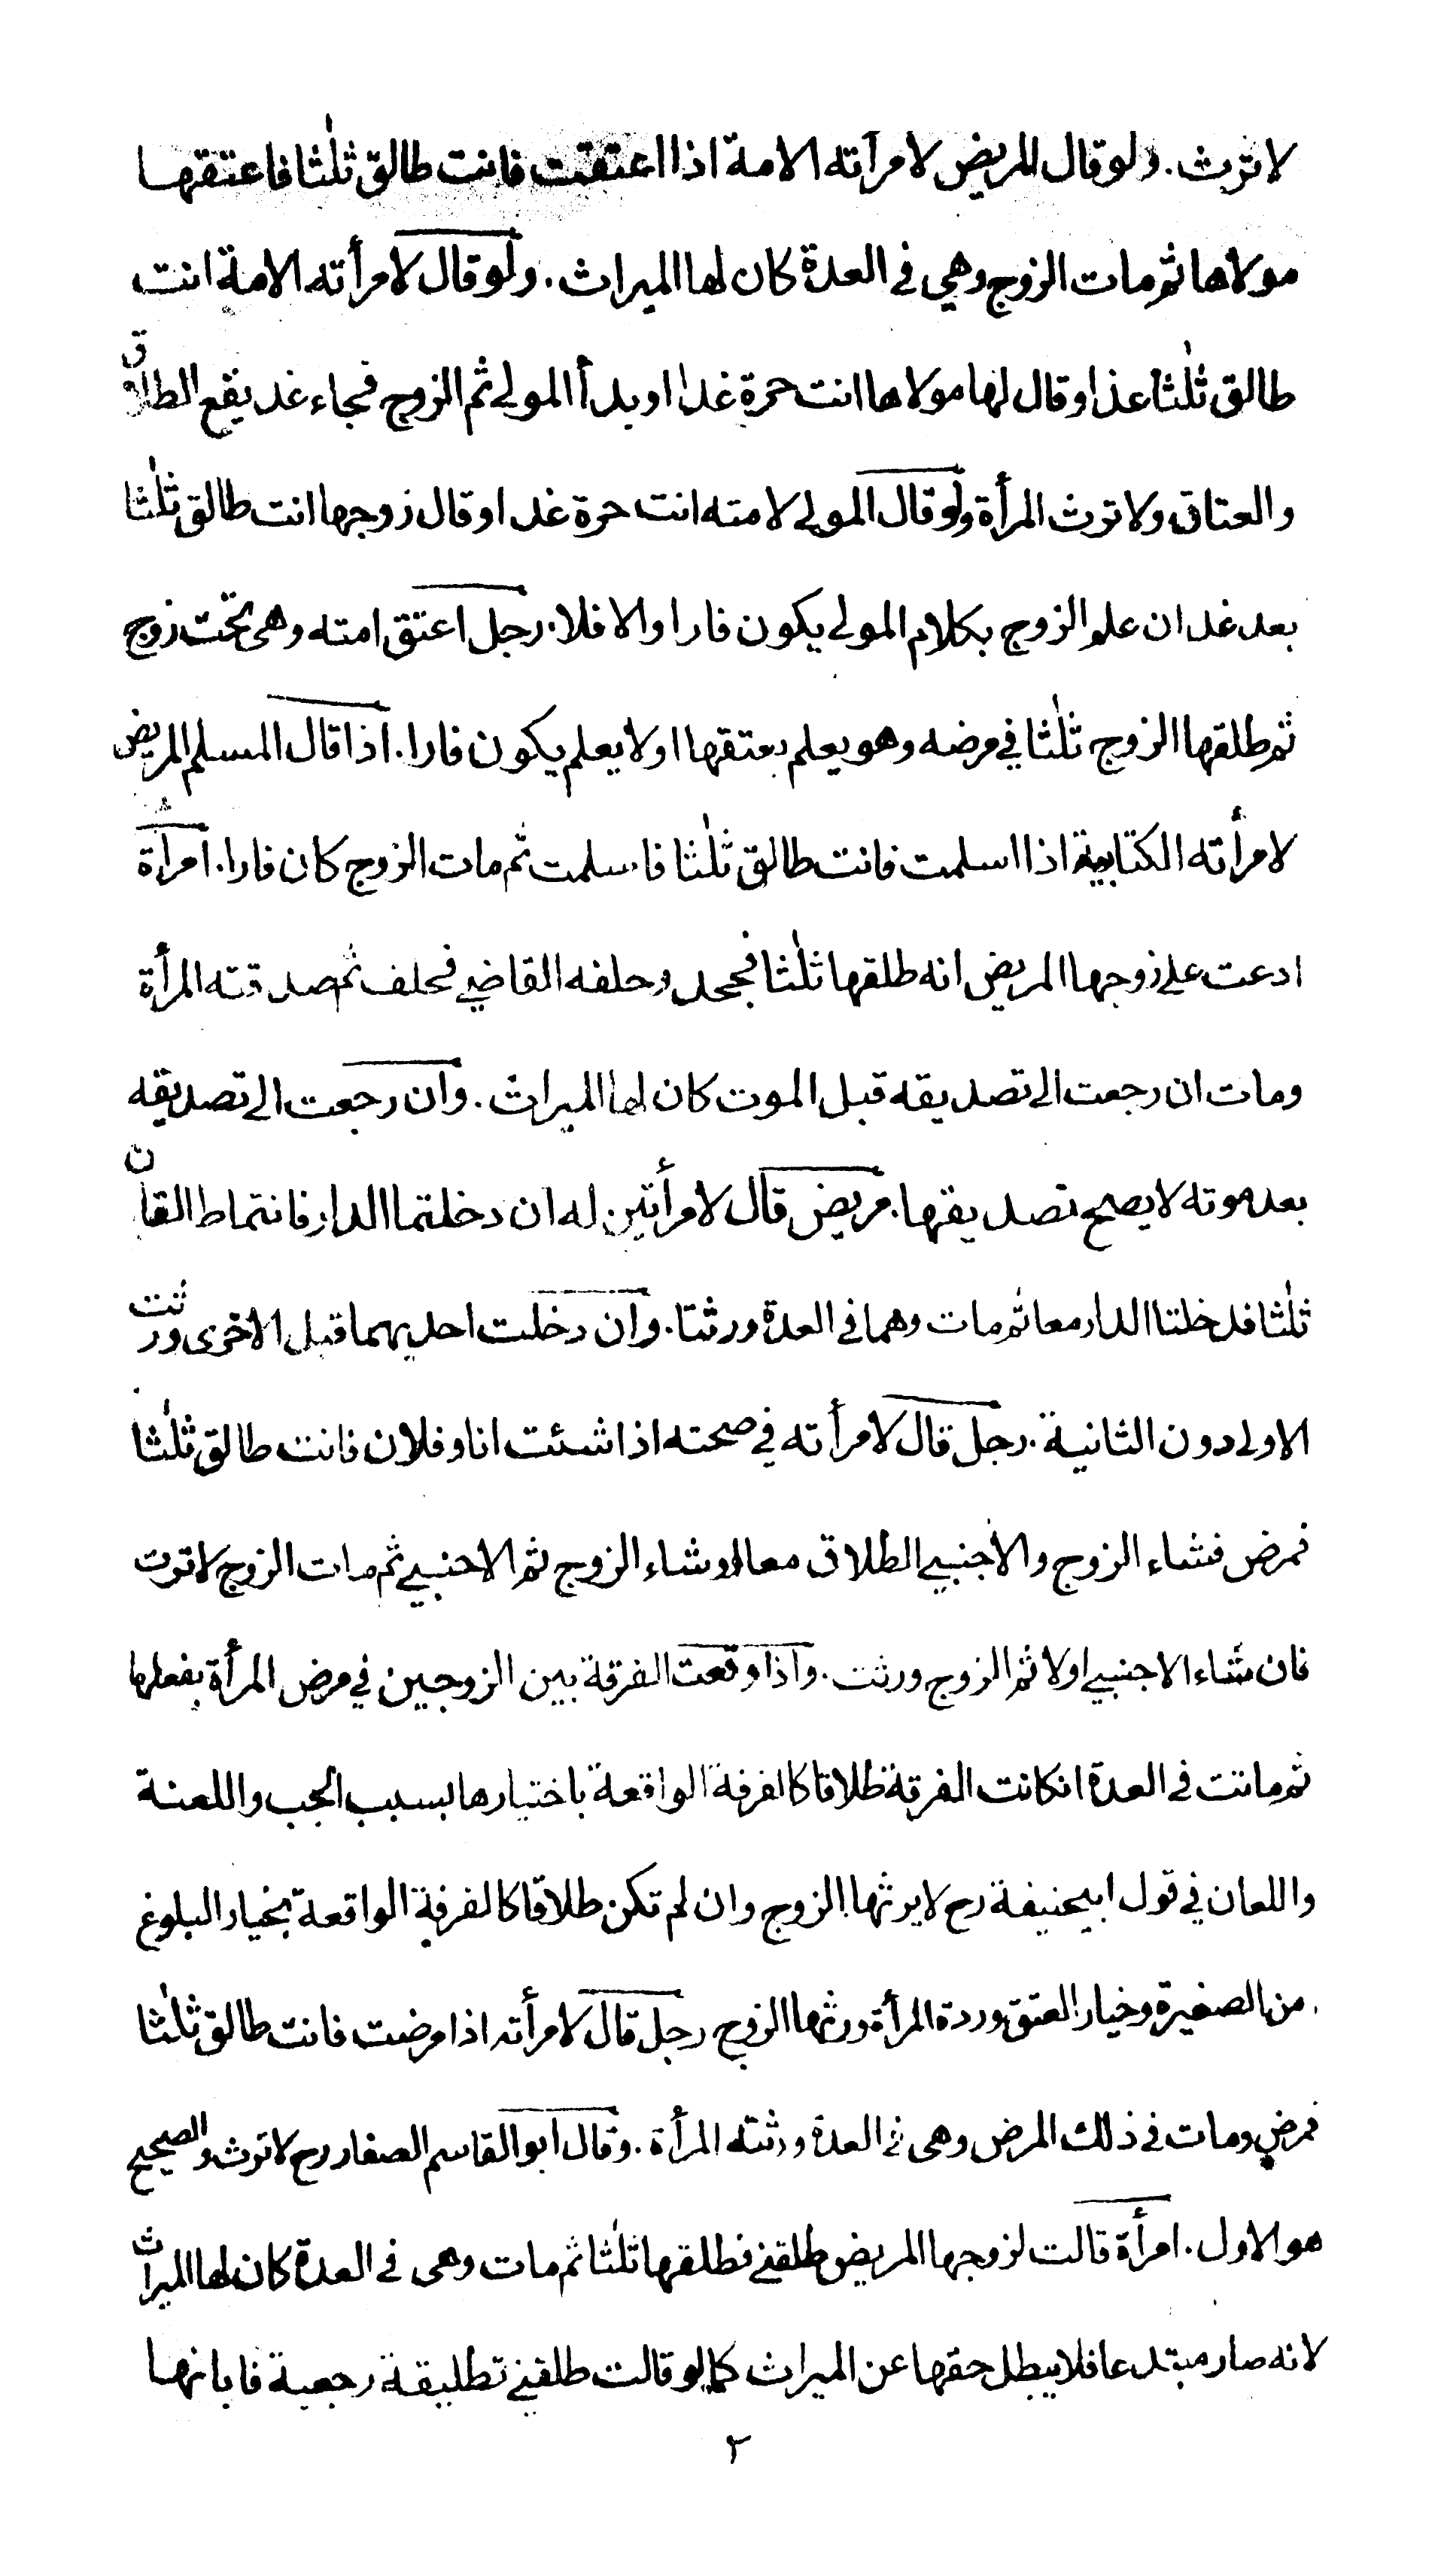 لا ترث. ولو قال المريض لامرأته الامة اذا اعتقت فانت طالق ثلٰثا فاعتقها
مولاها ثم مات الزوج وهي في العدة كان لها الميراث. ولو قال لامرأته الامة انت
طالق ثلٰثا غدا وقال لها مولاها انت حرة غدا او بدأ المولى ثم الزوج فجاء غد يقع الطلاق
والعتاق ولا ترث المرأة ولو قال المولى لامته انت حرة غدا وقال زوجها انت طالق ثلٰثا
بعد غد ان علم الزوج بكلام المولى يكون فارا والا فلا. رجل اعتق امته وهى تحت زوج
ثم طلقها الزوج ثلٰثا في مرضه وهو يعلم بعتقها او لا يعلم يكون فارا. اذا قال المسلم المريض
لامرأته الكتابية اذا اسلمت فانت طالق ثلٰثا فاسلمت ثم مات الزوج كان فارا. امرأة
ادعت على زوجها المريض انه طلقها ثلٰثا فجحد وحلفه القاضي فحلف ثم صدقته المرأة
ومات ان رجعت الى تصديقه قبل الموت كان لها الميراث. وان رجعت الى تصديقه
بعد موته لا يصح تصديقها. مريض قال لامرأتين له ان دخلتما الدار فانتما طالقان
ثلٰثا فدخلتا الدار معا ثم مات وهما في العدة ورثتا. وان دخلت احديهما قبل الاخرى ورثت
الاولى دون الثانية. رجل قال لامرأته في صحته اذا شئت انا وفلان فانت طالق ثلٰثا
فمرض فشاء الزوج والاجنبي الطلاق معا او شاء الزوج ثم الاجنبي ثم مات الزوج لا ترث
فان شاء الاجنبي اولا ثم الزوج ورثت. واذا وقعت الفرقة بين الزوجين في مرض المرأة بفعلها
ثم ماتت في العدة انكانت الفرقة طلاقا كالفرقة الواقعة باختيارها بسبب الجب واللعنة
واللعان في قول ابيحنيفة رح لا يرثها الزوج وان لم تكن طلاقا كالفرقة الواقعة بخيار البلوغ
من الصغيرة وخيار العتق وردة المرأة ورثها الزوج رجل قال لامرأته اذا مرضت فانت طالق ثلٰثا
فمرض ومات في ذلك المرض وهى في العدة ورثته المرأة. وقال ابو القاسم الصفار رح لا ترث والصحيح
هو الاول. امرأة قالت لزوجها المريض طلقني فطلقها ثلٰثا ثم مات وهى في العدة كان لها الميراث
لانه صار مبتدعا فلا يبطل حقها عن الميراث كما لو قالت طلقني تطليقة رجعية فابانها
٢